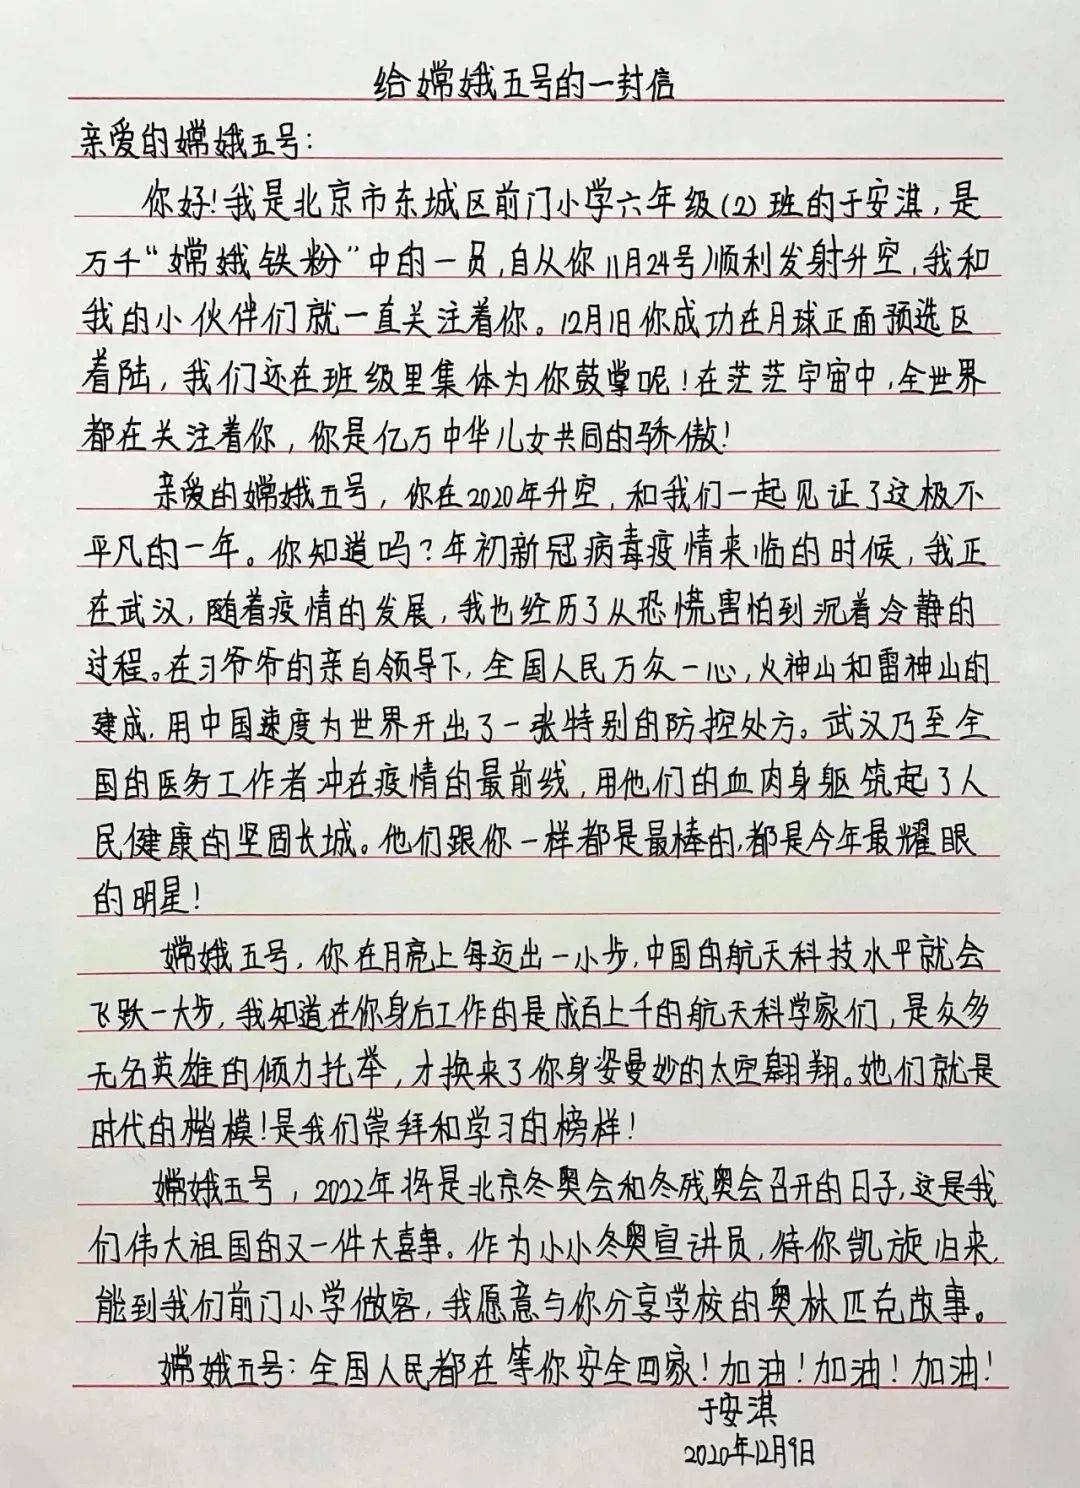 给嫦娥五号的一封信
亲爱的嫦娥五号：
你好！我是北京市东城区前门小学六年级(2)班的于安淇，是
万千“嫦娥铁粉”中的一员，自从你11月24号顺利发射升空，我和
我的小伙伴们就一直关注着你。12月1日你成功在月球正面预选区
着陆，我们还在班级里集体为你鼓掌呢！在茫茫宇宙中，全世界
都在关注着你，你是亿万中华儿女共同的骄傲！
亲爱的嫦娥五号，你在2020年升空，和我们一起见证了这极不
平凡的一年。你知道吗？年初新冠病毒疫情来临的时候，我正
在武汉，随着疫情的发展，我也经历了从恐慌害怕到沉着冷静的
过程。在习爷爷的亲自领导下，全国人民万众一心，火神山和雷神山的
建成，用中国速度为世界开出了一张特别的防控处方。武汉乃至全
国的医务工作者冲在疫情的最前线，用他们的血肉身躯筑起了人
民健康的坚固长城。他们跟你一样都是最棒的，都是今年最耀眼
的明星！
嫦娥五号，你在月亮上每迈出一小步，中国的航天科技水平就会
飞跃一大步，我知道在你身后工作的是成百上千的航天科学家们，是众多
无名英雄的倾力托举，才换来了你身姿曼妙的太空翱翔。她们就是
时代的楷模！是我们崇拜和学习的榜样！
嫦娥五号，2022年将是北京冬奥会和冬残奥会召开的日子，这是我
们伟大祖国的又一件大喜事。作为小小冬奥宣讲员，待你凯旋归来，
能到我们前门小学做客，我愿意与你分享学校的奥林匹克故事。
嫦娥五号：全国人民都在等你安全回家！加油！加油！加油！
于安淇
2020年12月9日